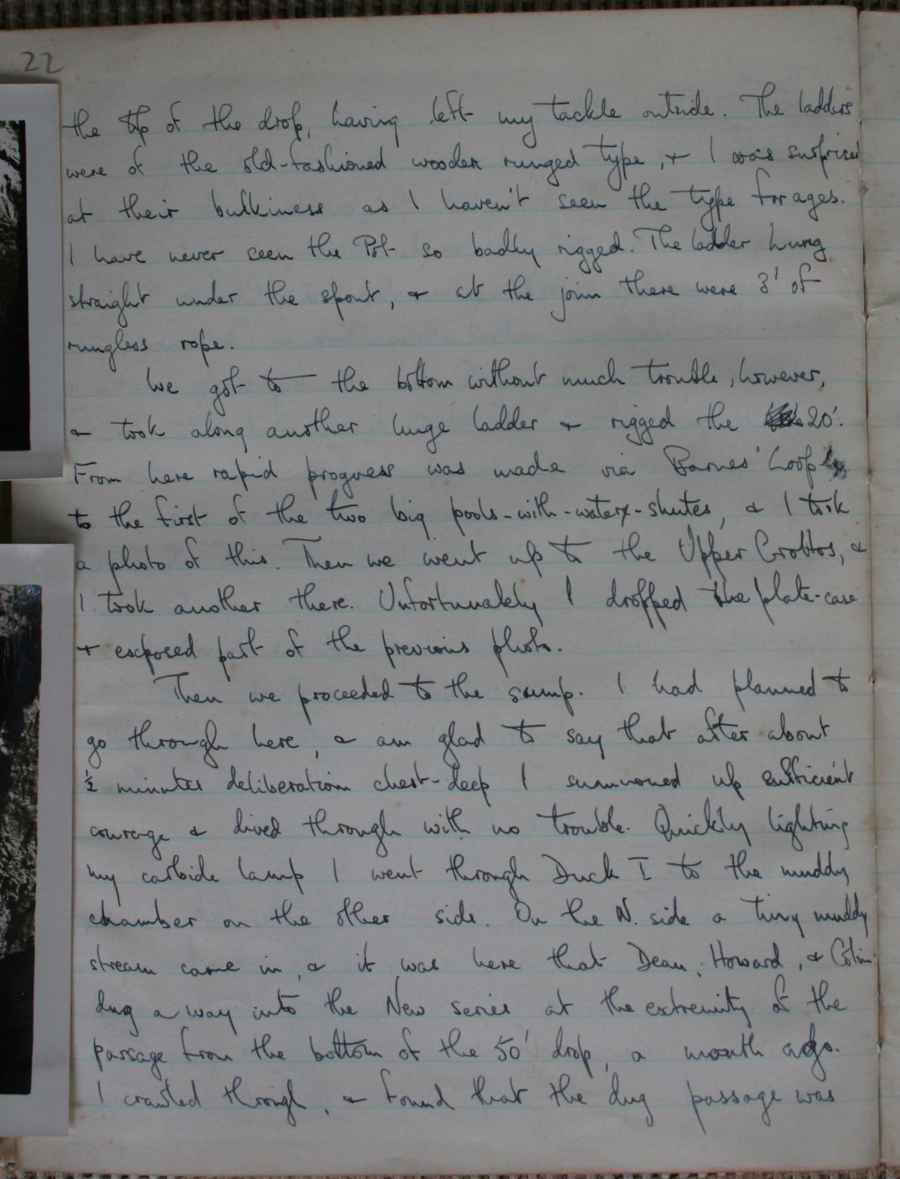 22
the top of the drop, having left my tackle outside. The ladders
were of the old-fashioned wooden runged type, & I was surprised
at their bulkiness as I haven't seen the type for ages.
I have never seen the Pot so badly rigged. The ladder hung
straight under the spout, & at the join there were 3' of
rungless rope.
We got to the bottom without much trouble, however,
& took along another huge ladder & rigged the 20'.
From here rapid progress was made via Barnes' Loop
to the first of the two big pools-with-water-shutes, & I took
a photo of this. Then we went up to the Upper Grottos, &
I took another there. Unfortunately I dropped the plate-case
& exposed part of the previous photo.
Then we proceeded to the sump. I had planned to
go through here, & am glad to say that after about
½ minutes deliberation chest-deep I summoned up sufficient
courage & dived through with no trouble. Quickly lighting
my carbide lamp I went through Duck I to the muddy
chamber on the other side. On the N. side a tiny muddy
stream came in, & it was here that Dean, Howard, & Colin
dug a way into the New series at the extremity of the
passage from the bottom of the 50' drop, a month ago.
I crawled through, & found that the dug passage was